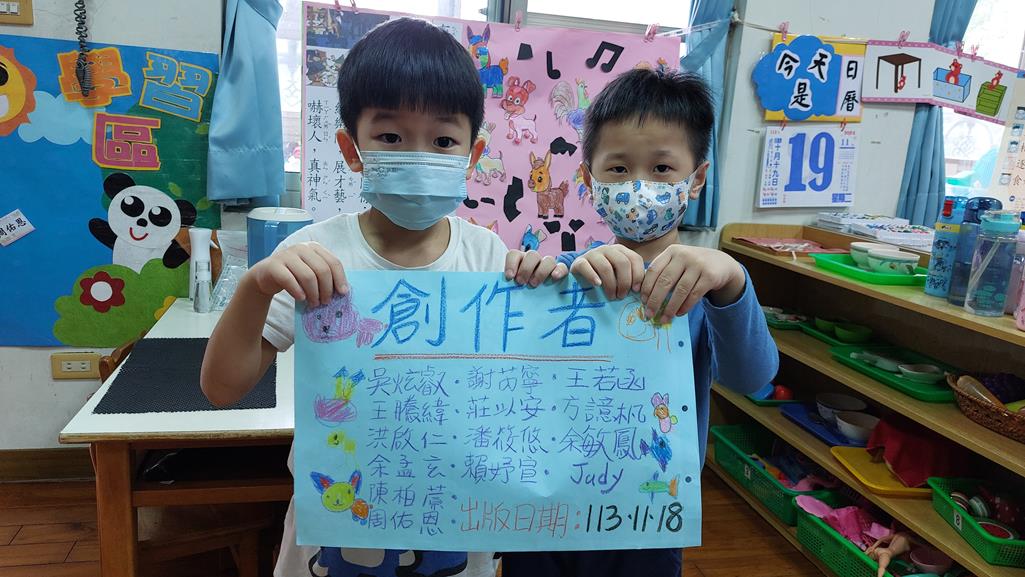 學習
區
周佑恩
嚇壞人，真神氣。
展才藝，
今天日
是 曆
十月十九日
19
11
星期二
創作者
吳炫叡．謝芮寧．王若函
王騰緯．莊以安．方譩楓
洪啟仁．潘筱悠．余敏鳳
余孟玄．賴妤宣．Judy
陳柏蓒．
周佑恩．出版日期：113.11.18